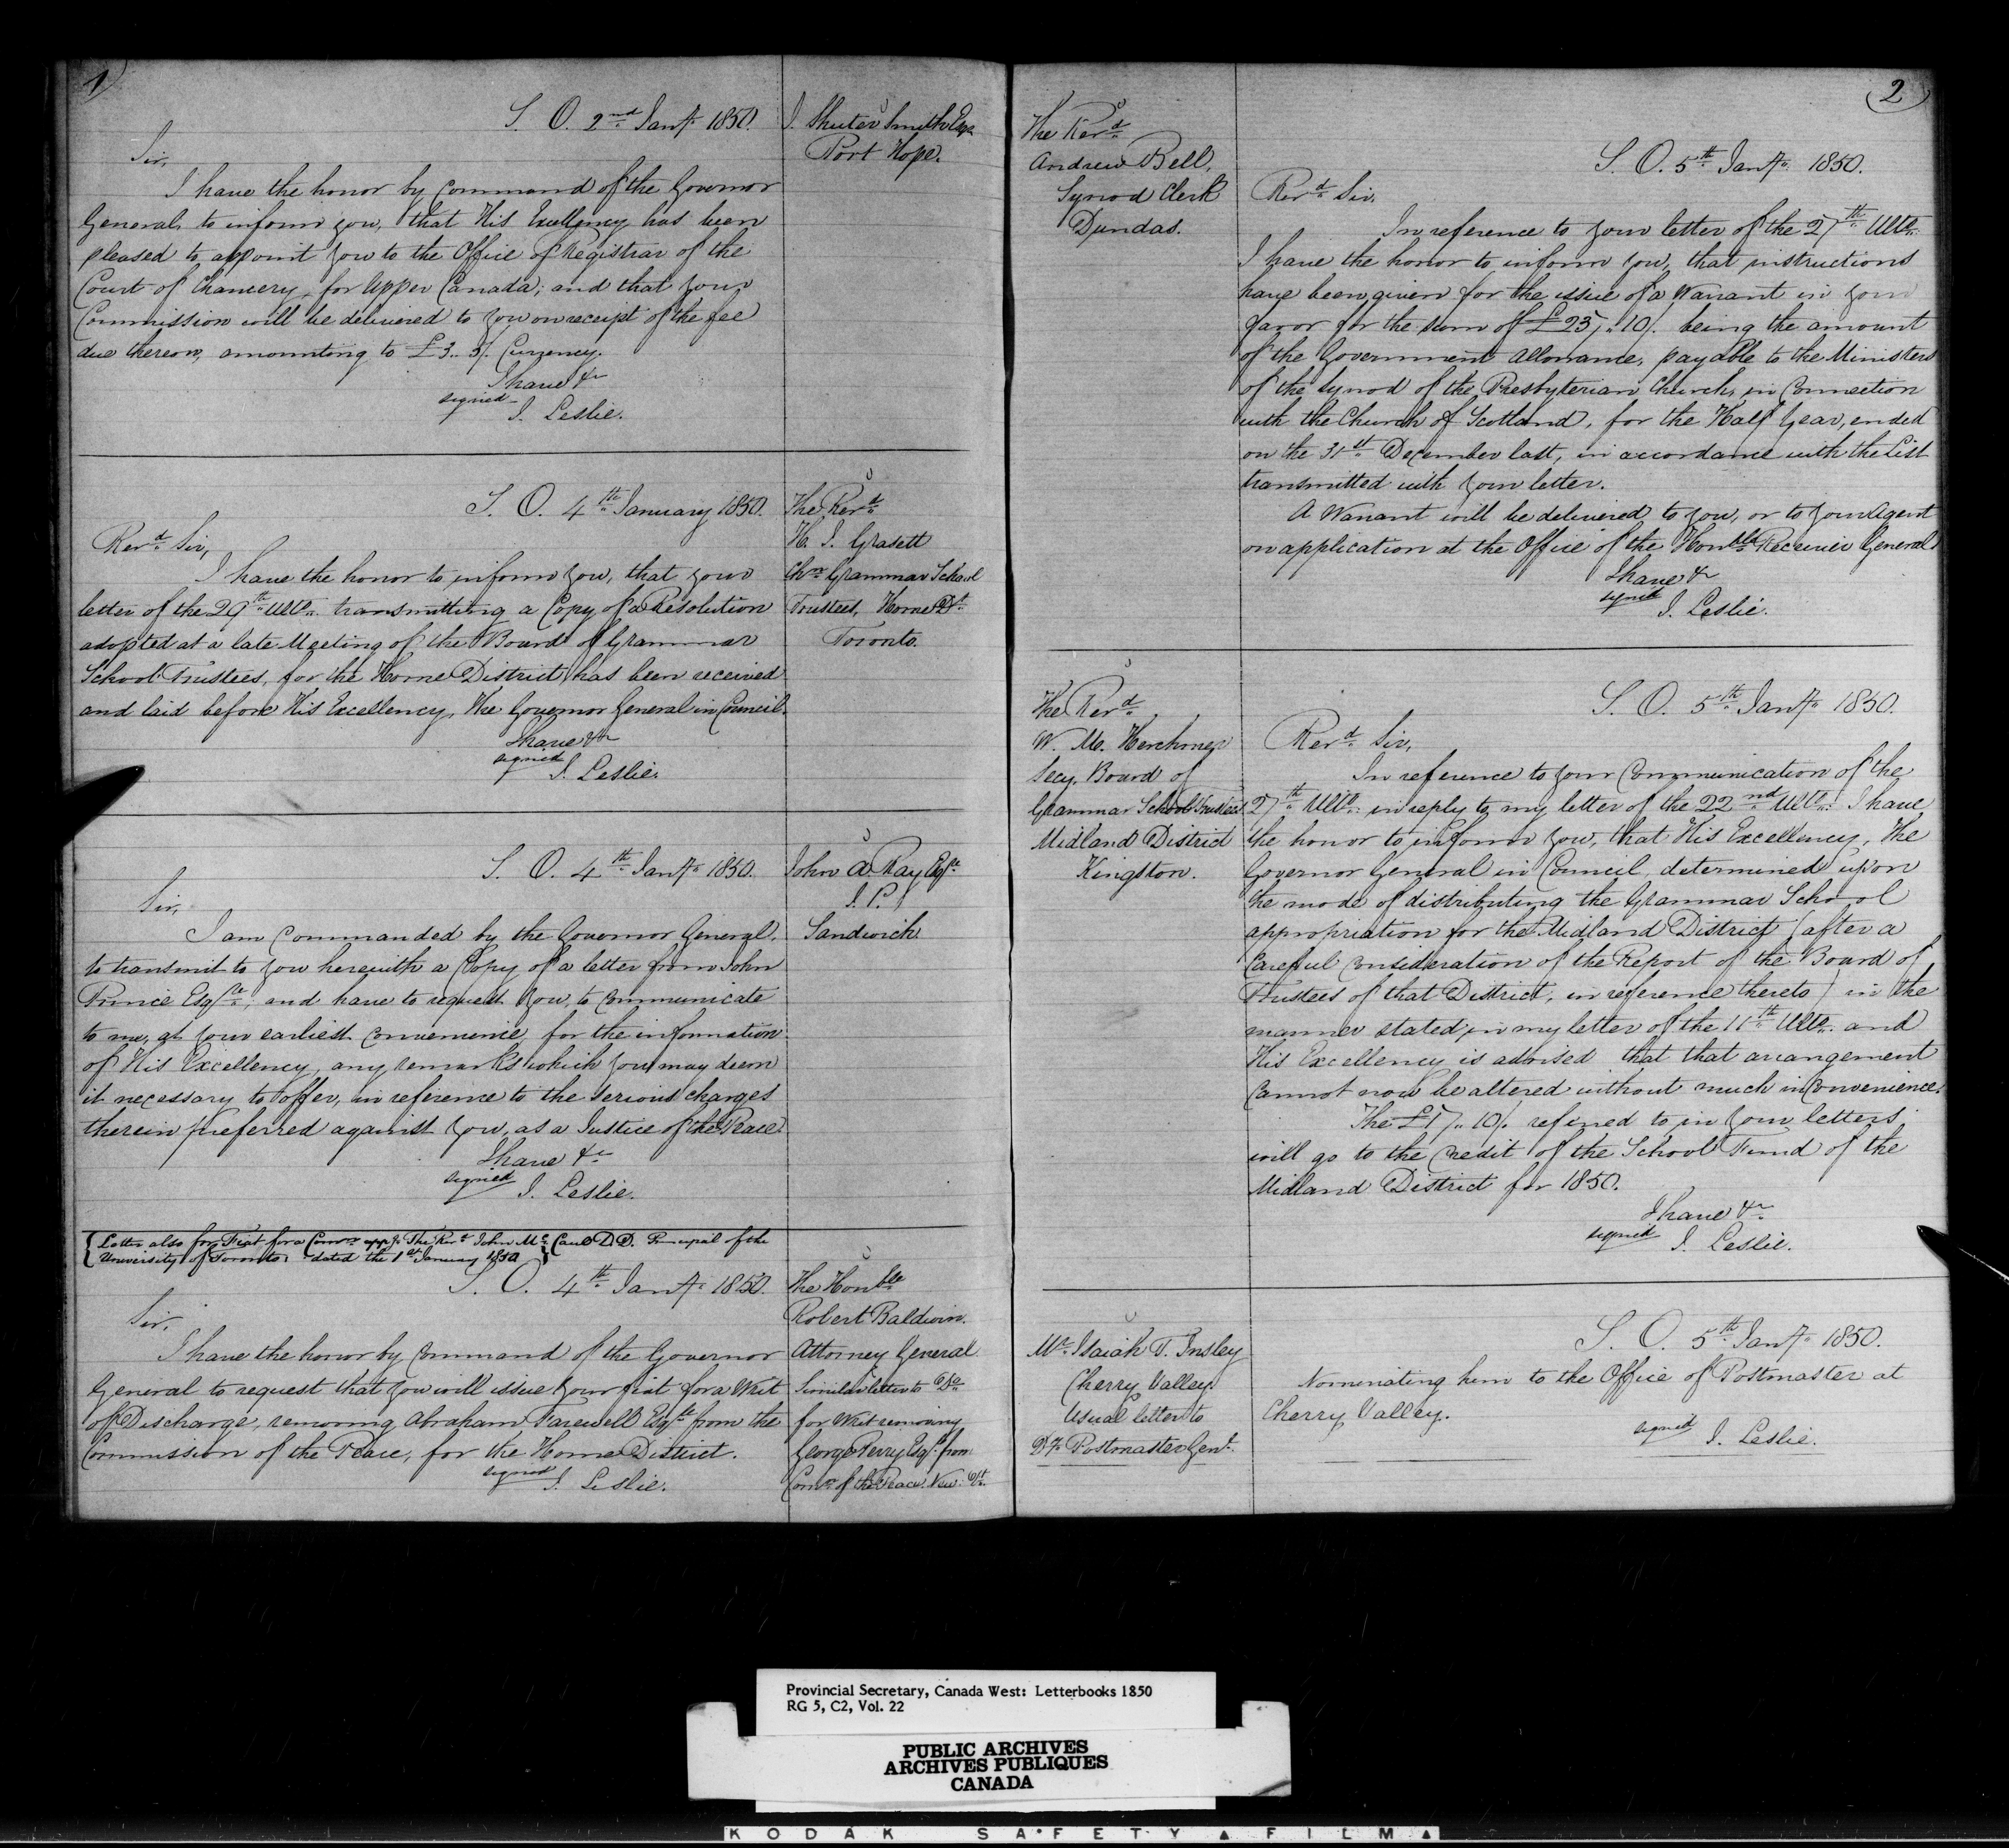 1
S. O. 2nd Jany. 1850.
J. Shuter Smith Esqr.
Port Hope.
Sir,
I have the honor by Command of the Governor
General, to inform you, that His Excellency has been
pleased to appoint you to the Office of Registrar of the
Court of Chancery, for Upper Canada; and that your
Commission will be delivered to you on receipt of the fee
due thereon, amounting to £3.. 5/. Currency.
I have &c
signed
J. Leslie.
S. O. 4th January 1850.
The Revd.
H. J. Grasett
Chn. Grammar School
Trustees, Home Dt.
Toronto.
Revd. Sir,
I have the honor to inform you, that your
letter of the 29th Ulto. transmitting a Copy of a Resolution
adopted at a late Meeting of the Board of Grammar
School Trustees, for the Home District, has been received
and laid before His Excellency, The Governor General in Council.
I have &c
signed
J. Leslie.
S. O. 4th Jany. 1850.
John A. Ray Esqre.
J. P.
Sandwich
Sir,
I am Commanded by the Governor General,
to transmit to you herewith a Copy of a letter from John
Prince Esqre.; and have to request you, to Communicate
to me, at your earliest convenience, for the information
of His Excellency, any remarks which you may deem
it necessary to offer, in reference to the serious charges
therein preferred against you, as a Justice of the Peace.
I have &c
signed
J. Leslie.
{Letter also for Fiat for a Comn. appg. The Revd. John McCaul D.D. Principal of the
University of Toronto. dated the 1st January 1850}
S. O. 4th Jany. 1850.
The Honble
Robert Baldwin.
Attorney General
Similar letter to Do.
for Writ removing
George Perry Esqr. from
Comn. of the Peace. New: Dt.
Sir,
I have the honor by Command of the Governor
General to request that you will issue your fiat for a Writ
of Discharge, removing Abraham Farewell Esqre. from the
Commission of the Peace, for the Home District.
signed
J. Leslie.
2
The Revd.
Andrew Bell,
Synod Clerk
Dundas.
S. O. 5th Jany. 1850.
Revd. Sir,
In reference to your letter of the 27th Ulto.
I have the honor to inform you, that instructions
have been given for the issue of a Warrant in your
favor for the sum of £ 10/. being the amount
of the Government Allowance, payable to the Ministers
of the Synod of the Presbyterian Church, in Connection
with the Church of Scotland, for the Half Year, ended
on the 31st December last, in accordance with the List
transmitted with your letter.
A Warrant will be delivered to you, or to your Agent
on application at the Office of the Honble Receiver General.
I have &c
signed
J. Leslie.
The Revd.
W. M. Herchmer
Secy. Board of
Grammar School Trustees
Midland District
Kingston.
S. O. 5th Jany. 1850.
Revd. Sir,
In reference to your Communication of the
27th Ulto. in reply to my letter of the 22nd Ulto. I have
the honor to inform you, that His Excellency, The
Governor General in Council, determined upon
the mode of distributing the Grammar School
appropriation for the Midland District (after a
Careful Consideration of the Report of the Board of
Trustees of that District, in reference thereto) in the
manner stated in my letter of the 11th Ulto. and
His Excellency is advised that that arrangement
Cannot now be altered without much inConvenience.
The 10/. referred to in your letters
will go to the Credit of the School Fund of the
Midland District for 1850.
I have &c
signed
J. Leslie.
Mr. Isaiah T. Insley
Cherry Valley
Usual letter to
Dy. Postmaster Genl.
S. O. 5th Jany. 1850.
Nominating him to the Office of Postmaster at
Cherry Valley.
signed
J. Leslie.
Provincial Secretary, Canada West: Letterbooks 1850
RG 5, C2, Vol. 22
PUBLIC ARCHIVES
ARCHIVES PUBLIQUES
CANADA
KODAK SAFETY FILM